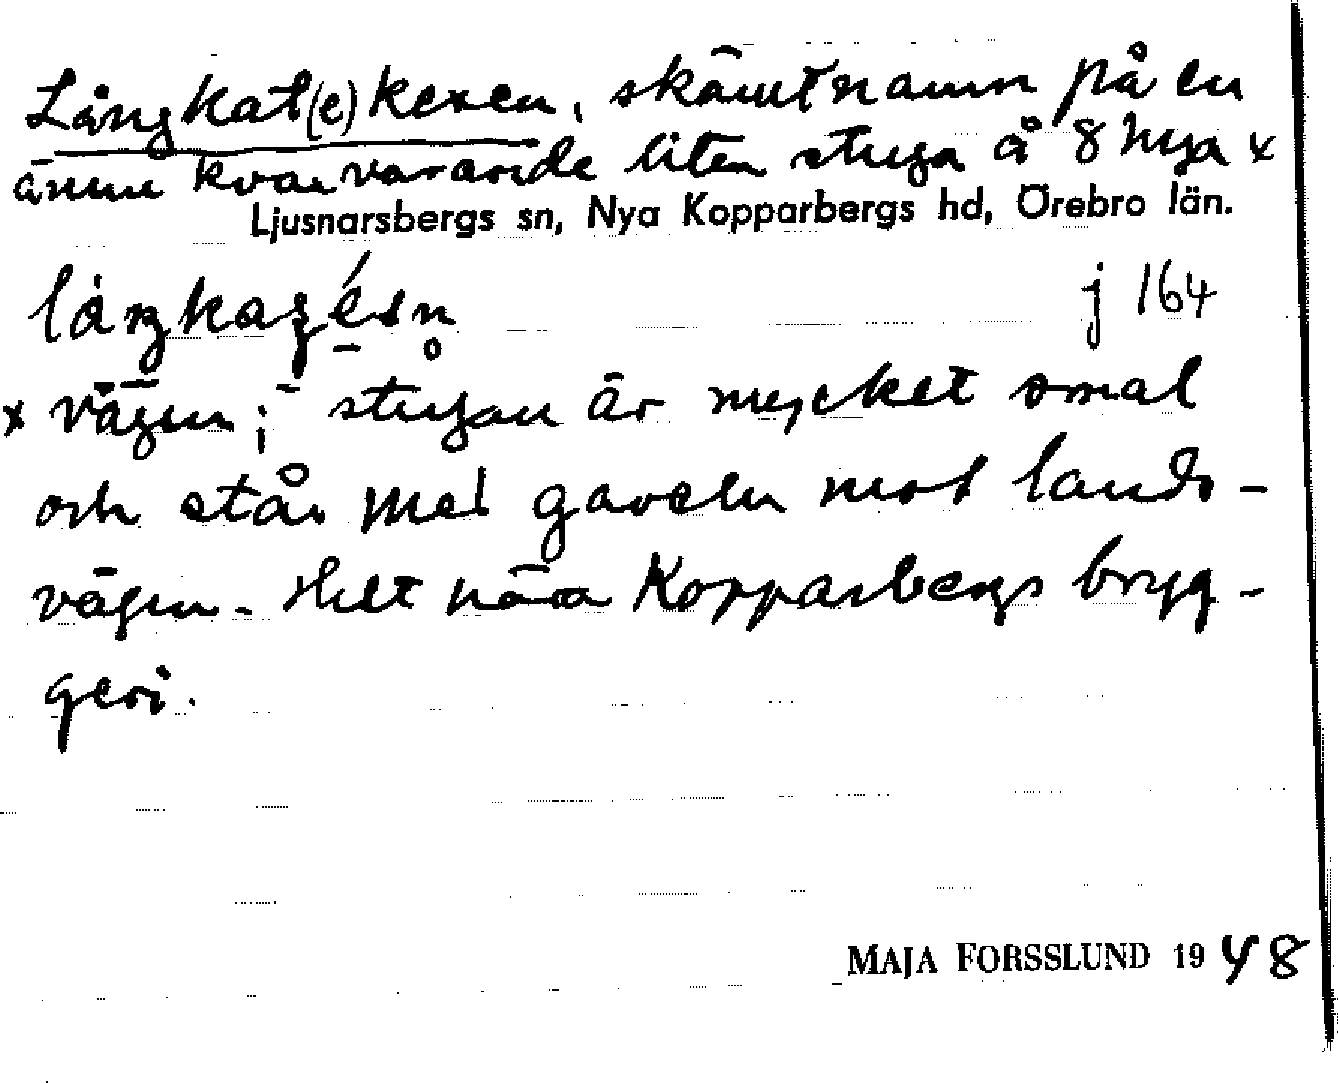 Långkat(e)kesen, skämtnamn på en
ännu kvarvarande liten stuga å 8 nya x
Ljusnarsbergs sn, Nya Kopparbergs hd, Örebro län.
j 164
x vägen; - stugan är mycket smal
och står med gaveln mot lands-
vägen. Helt nära Kopparbergs bryg-
geri.
MAJA FORSSLUND 1948